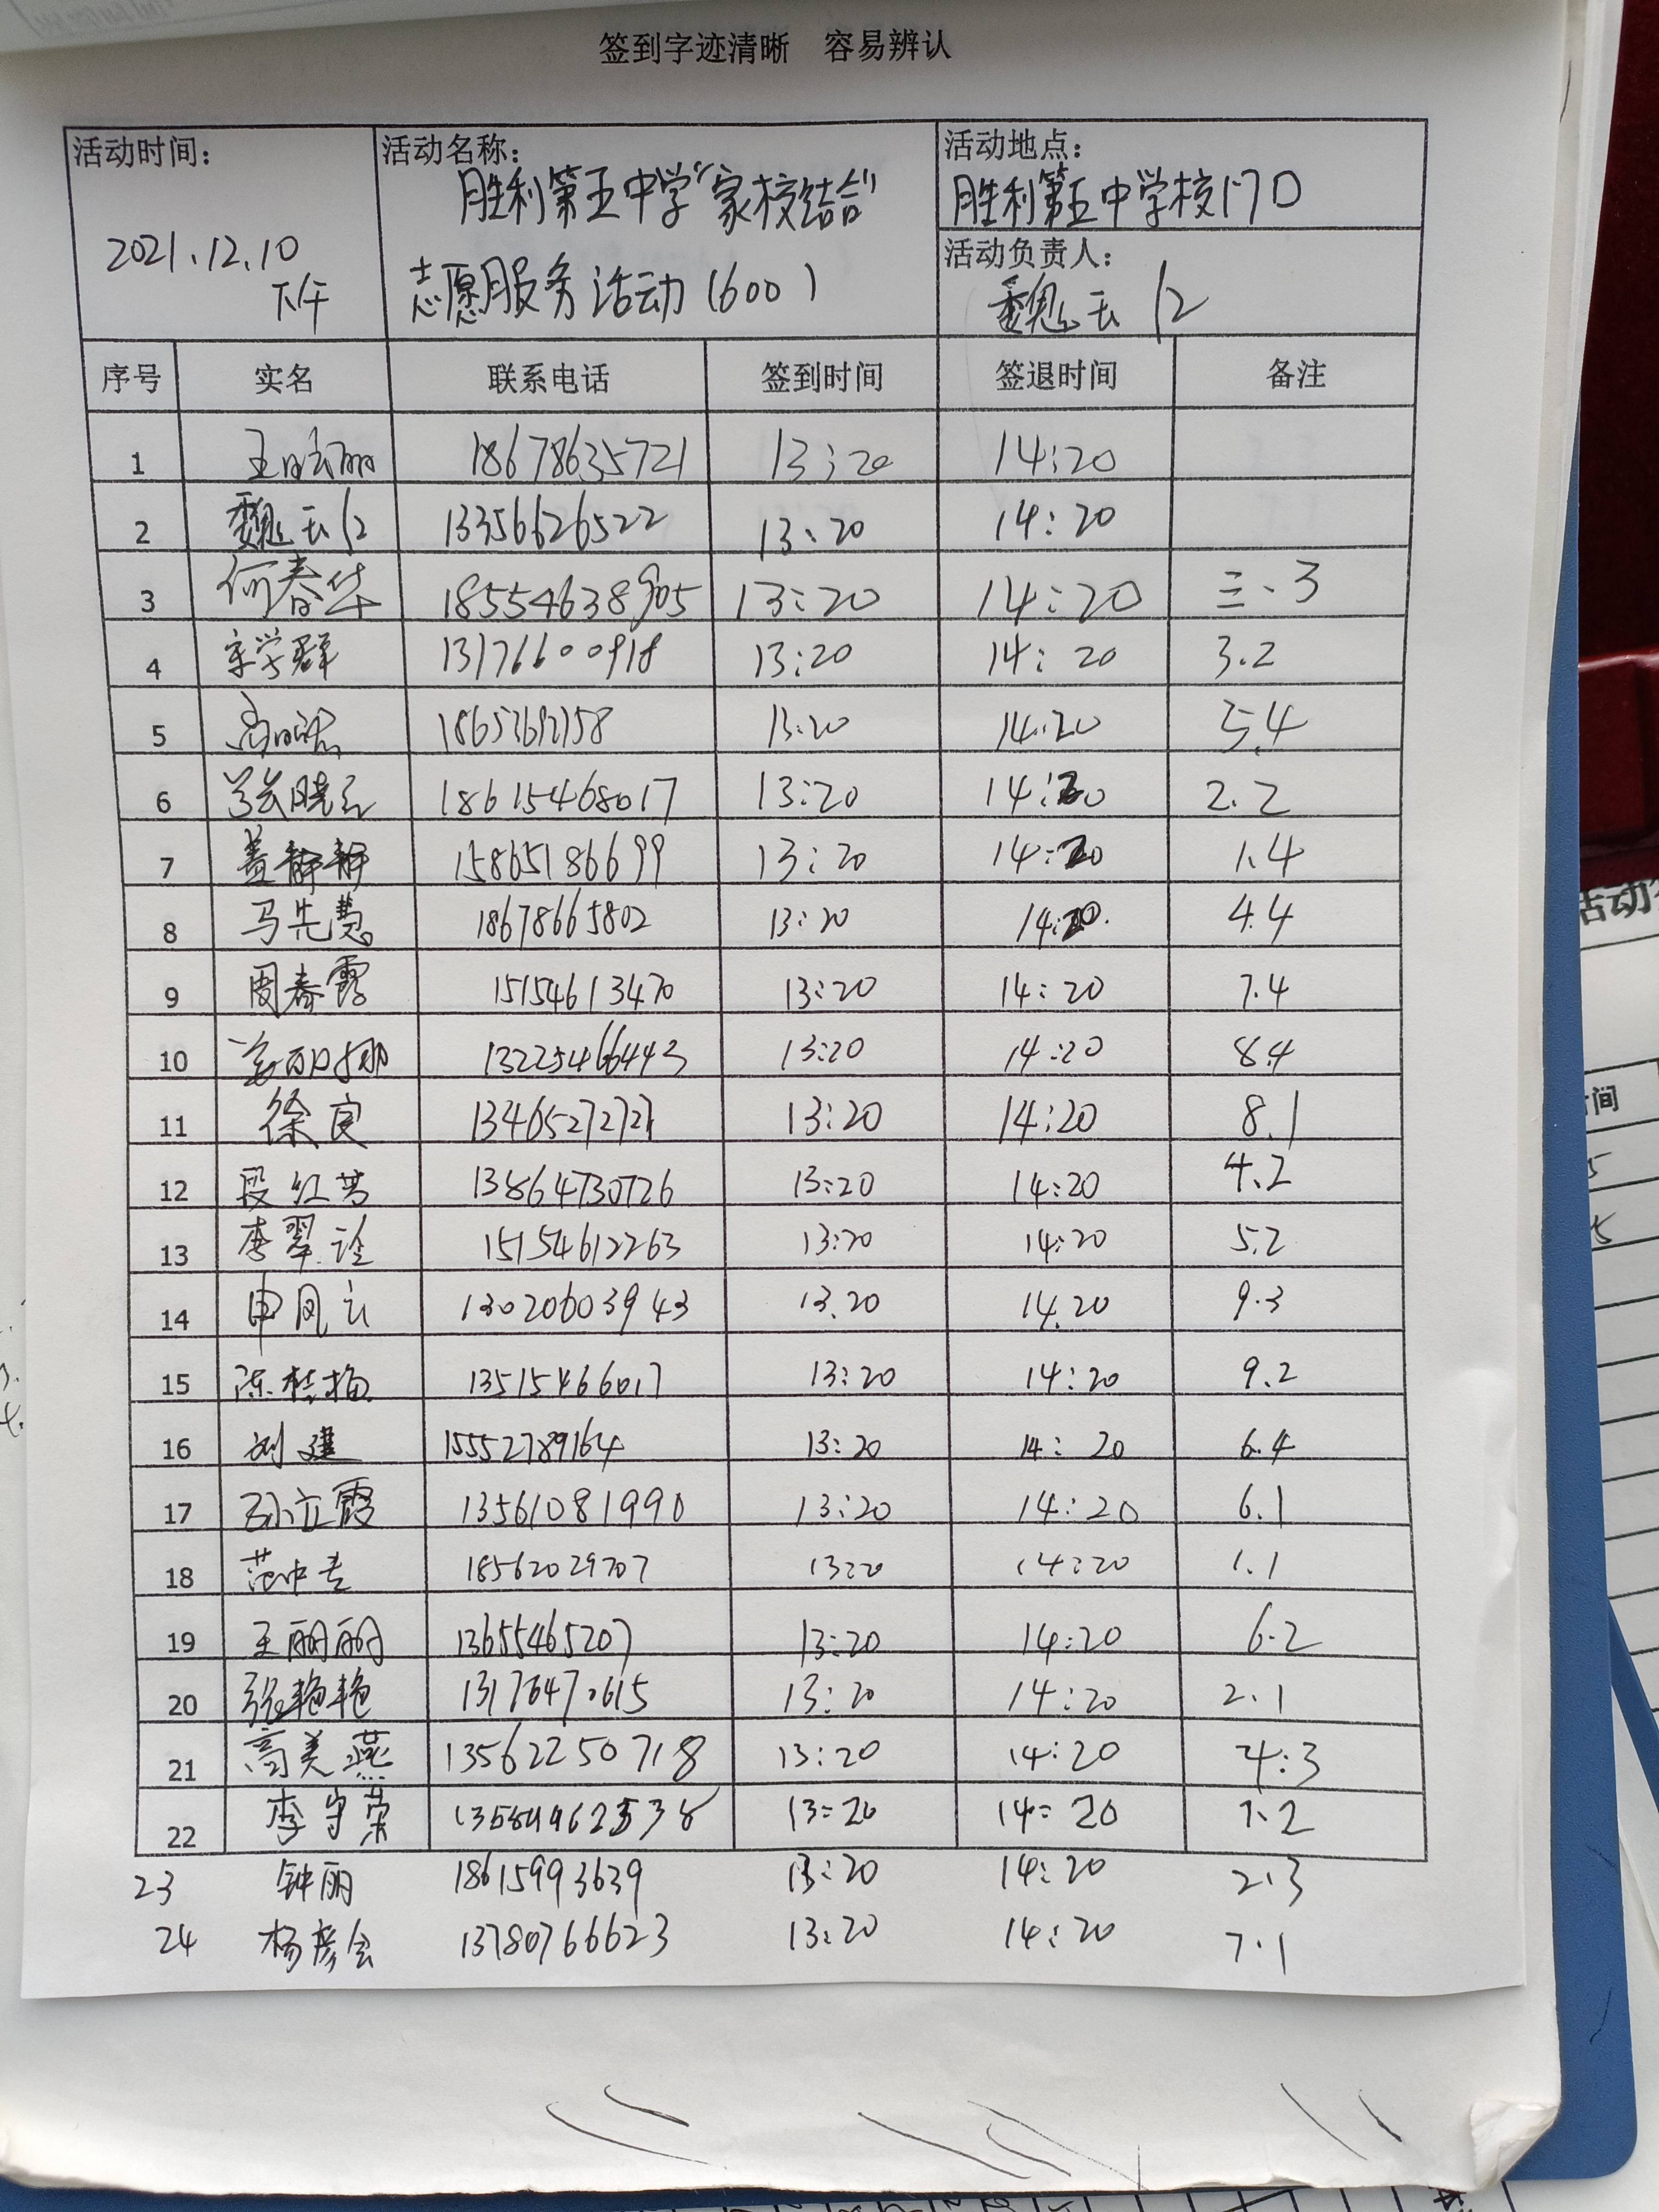 签到字迹清晰 容易辨认
活动时间：
2021.12.10
下午
活动名称：
胜利第五中学“家校结合”
志愿服务活动（600）
活动地点：
胜利第五中学校门口
活动负责人：
魏云仁
序号 实名 联系电话 签到时间 签退时间 备注
1 18678635721 13:20 14:20
2 魏云仁 13356626522 13:20 14:20
3 何春华 18554638905 13:20 14:20 三.3
4 宋学群 13176600918 13:20 14:20 3.2
5 13:20 14:20 5.4
6 张晓云 18615468017 13:20 14:20 2.2
7 盖静静 15865186699 13:20 14:20 1.4
8 马先慧 18678665802 13:20 14:20. 4.4
9 周春霞 15154613470 13:20 14:20 7.4
10 姜丽娜 13225466443 13:20 14:20 8.4
11 徐良 13:20 14:20 8.1
12 段红芳 13864730726 13:20 14:20 4.2
13 李翠玲 15154612263 13:20 14:20 5.2
14 申凤云 13020603943 13.20 14.20 9.3
15 陈桂梅 13515466017 13:20 14:20 9.2
16 刘建 15552789164 13:20 14:20 6.4
17 孙立霞 13561081990 13:20 14:20 6.1
18 18562029707 13:20 14:20 1.1
19 王丽丽 13655465207 13:20 14:20 6.2
20 张艳艳 13176470615 13:20 14:20 2.1
21 高美燕 13562250718 13:20 14:20 4:3
22 李守荣 13:20 14:20 1.2
23 钟丽 18615993639 13:20 14:20 2.3
24 杨彦会 13780766623 13:20 14:20 7.1
活动
间